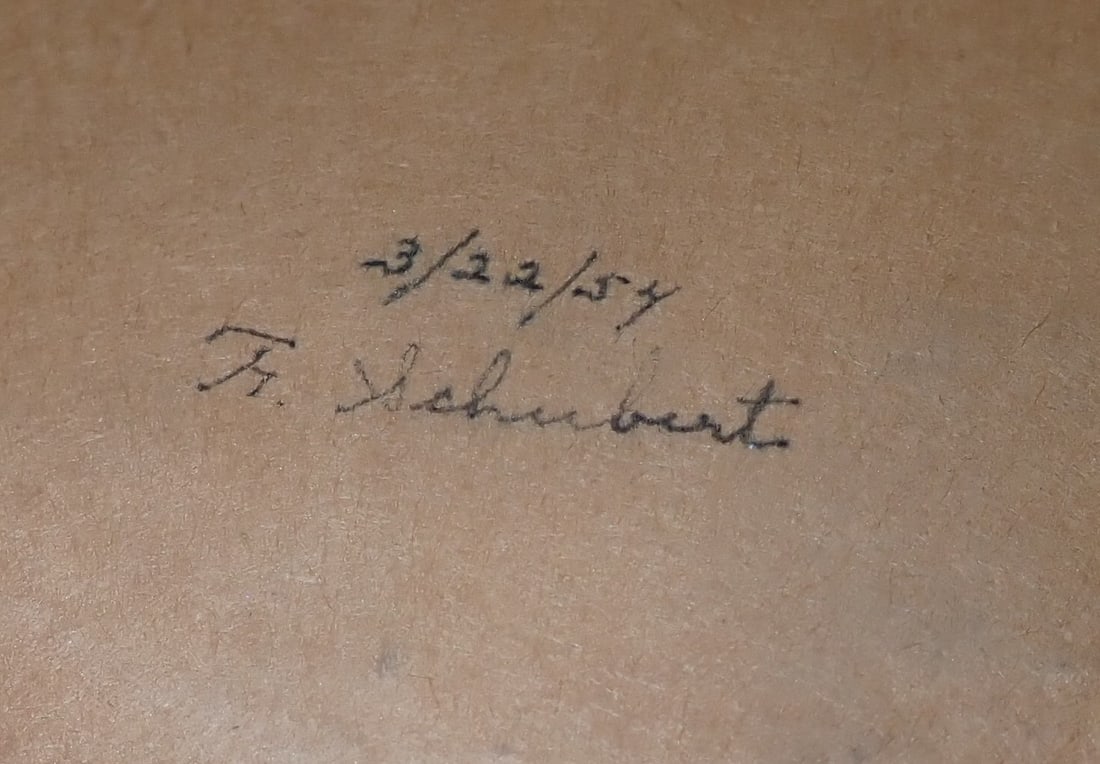 3/22/54
Fr. Schubert